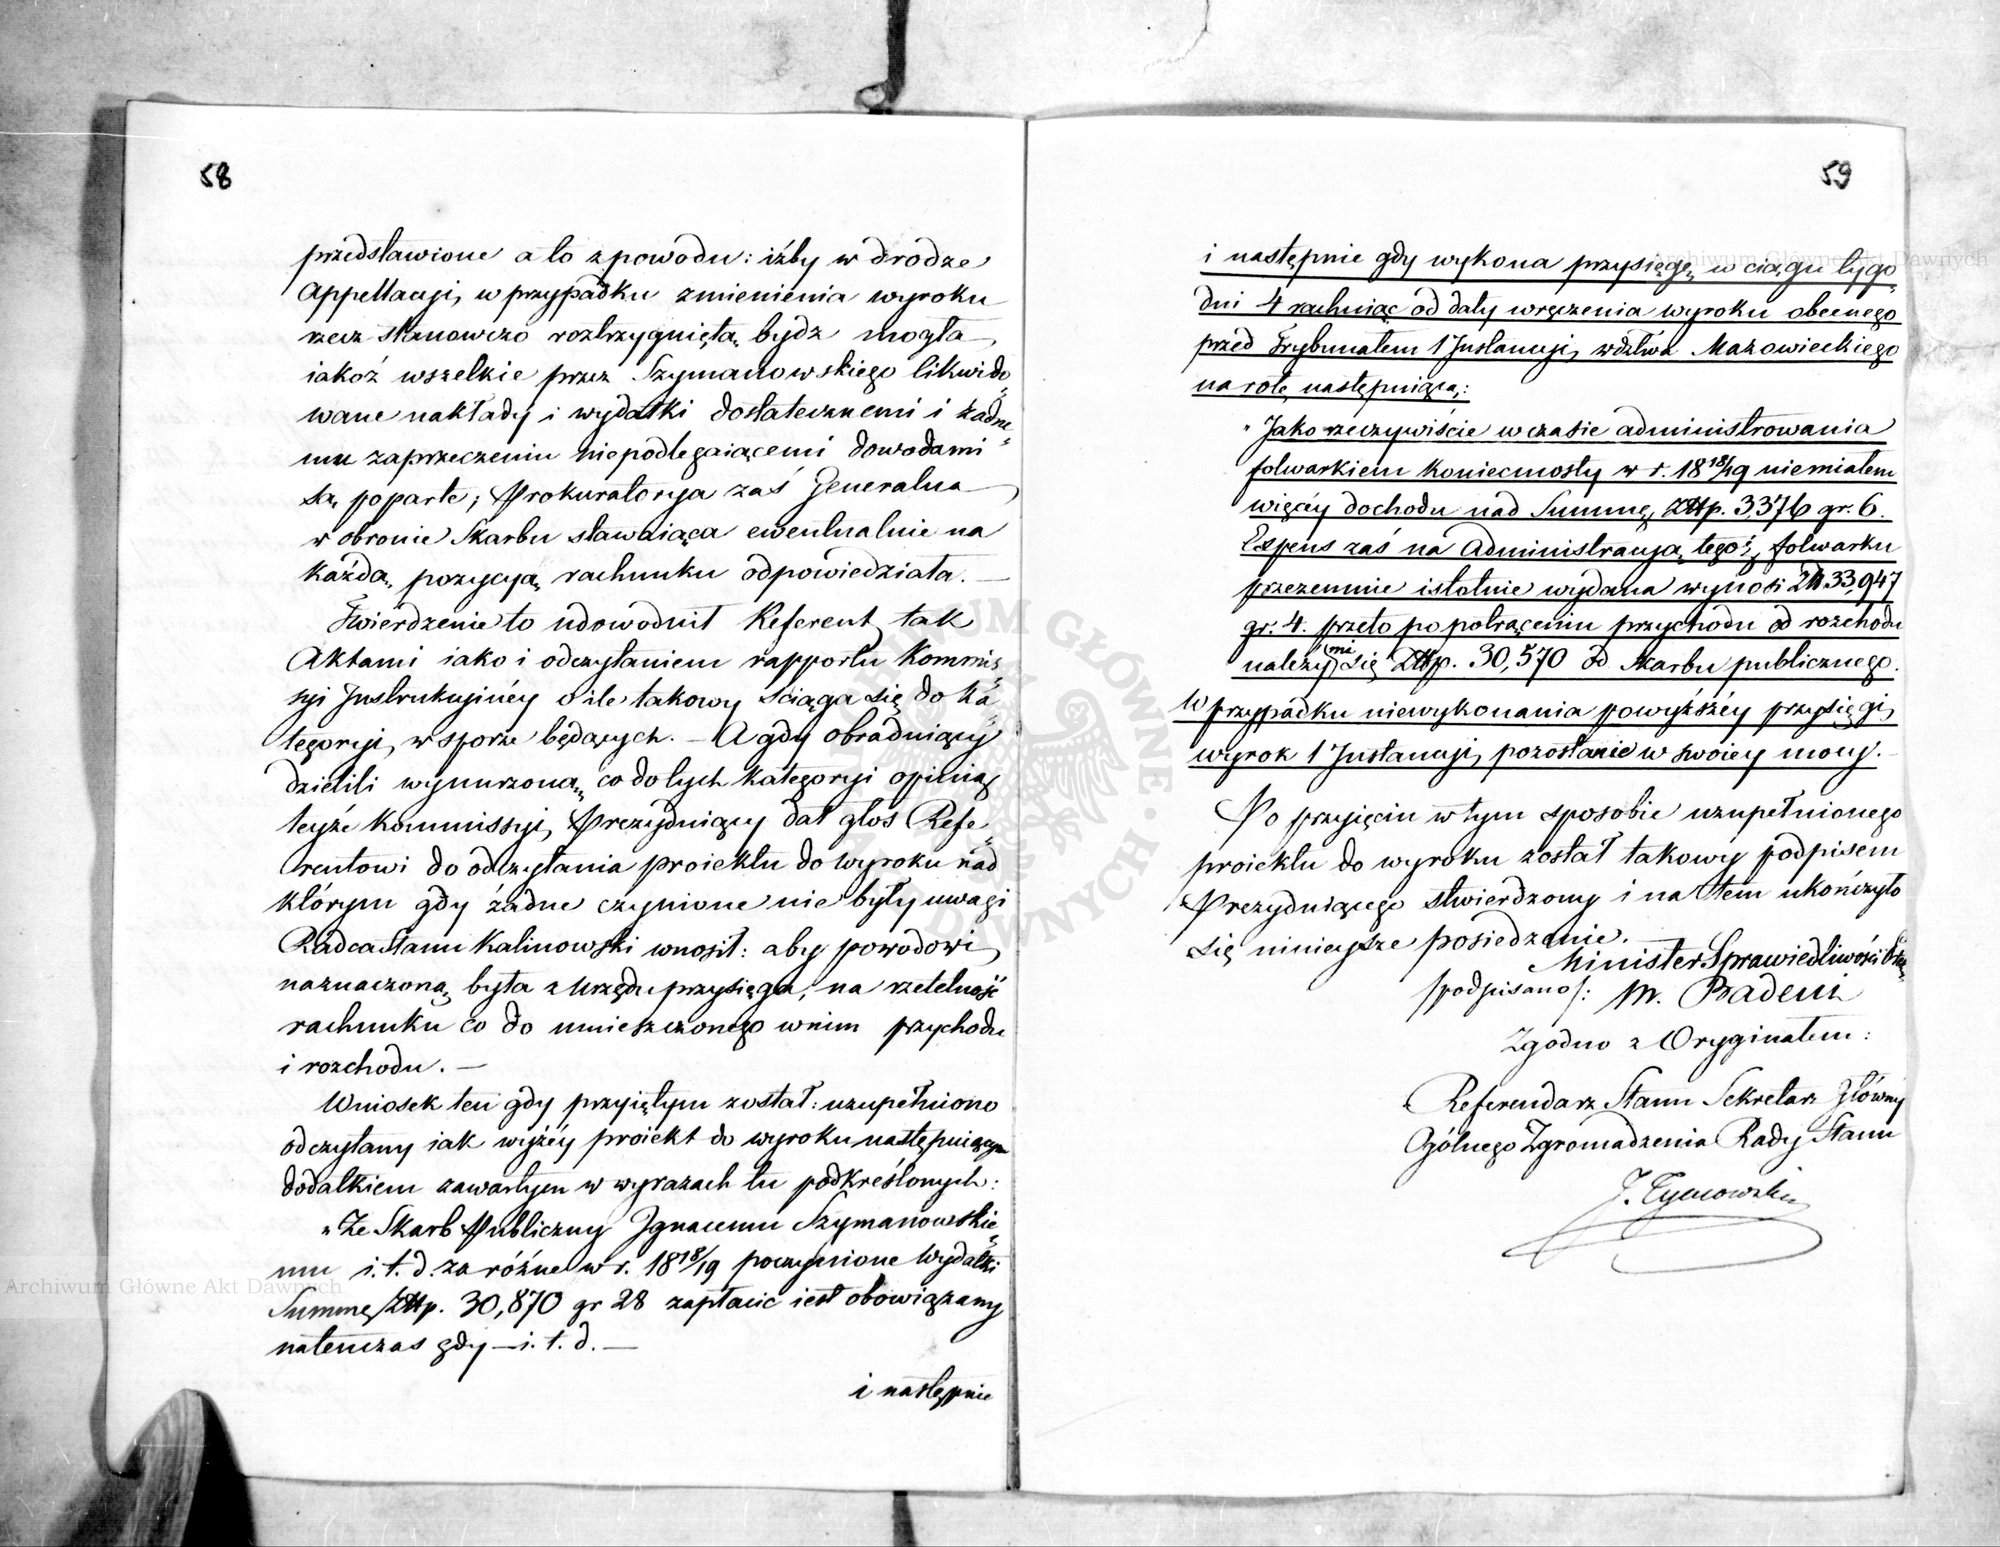 58
przedstawione a to z powodu: iżby w drodze
Appellacyi, w przypadku zmienienia wyroku
rzecz stanowczo roztrzygniętą bydź mogła
iakoż wszelkie przez Szymanowskiego likwido„
wane nakłady i wydatki dostatecznemi i żadne„
mu zaprzeczeniu niepodlegaiącemi dowodami
są poparte; Prokuratorya zaś Generalna
w obronie Skarbu stawaiąca ewentualnie na
każdą pozycyą rachunku odpowiedziała. —
Twierdzenie to udowodnił Referent tak
Aktami iako i odczytaniem rapportu Kommis„
syi Instrukcyinéy o ile takowy ściąga się do ka„
tegoryi, w sporze będących. — A gdy obraduiący
dzielili wynurzoną co do tych kategoryi opinią
teyże Kommissyi, Prezyduiący dał głos Refe„
rentowi do odczytania proiektu do wyroku nad
którym gdy żadne czynione nie były uwagi
Radca Stanu Kalinowski wnosił: aby powodowi
naznaczoną była z Urzędu przysięga, na rzetelność
rachunku co do umieszczonego w nim przychodu
i rozchodu. —
Wniosek ten gdy przyiętym został: uzupełniono
odczytany iak wyżéy proiekt do wyroku następuiącym
dodatkiem zawartym w wyrazach tu podkreślonych:
„Że Skarb Publiczny Ignacemu Szymanowskie„
mu i. t. d. za różne w r. 1818/19 poczynione Wydatki
Summę Złłp. 30,870 gr 28 zapłacić iest obowiązany
natenczas gdy — i. t. d. —
i następnie
59
i następnie gdy wykona przysięgę w ciągu tygo„
dni 4 rachuiąc od daty wręczenia wyroku obecnego
przed Trybunałem 1 Instancyi, wdztwa Mazowieckiego
na rotę następuiącą:
„Jako rzeczywiście w czasie administrowania
folwarkiem Koniecmosty w r. 1818/19 niemiałem
więcéy dochodu nad Summę Złłp. 3,376 gr. 6.
Expens zaś na Administracyą tegoż folwarku
przezemnie istotnie wydana wynosi Zł 33,947
gr. 4. przeto po potrąceniu przychodu od rozchodu
należy mi się Złłp. 30,570 od Skarbu publicznego.
W przypadku niewykonania powyższéy przysięgi,
wyrok 1 Instancyi, pozostanie w swoiey mocy. —
Po przyięciu w tym sposobie uzupełnionego
proiektu do wyroku został takowy podpisem
Prezyduiącego stwierdzony i na tem ukończyło
się ninieysze posiedzenie.
Minister Sprawiedliwości
/podpisano/: M. Badeni
Zgodno z Oryginałem:
Referendarz Stanu Sekretarz Główny
Ogólnego Zgromadzenia Rady Stanu
J. Tymowski
Archiwum Główne Akt Dawnych
Archiwum Główne Akt Dawnych
ARCHIWUM GŁÓWNE AKT DAWNYCH